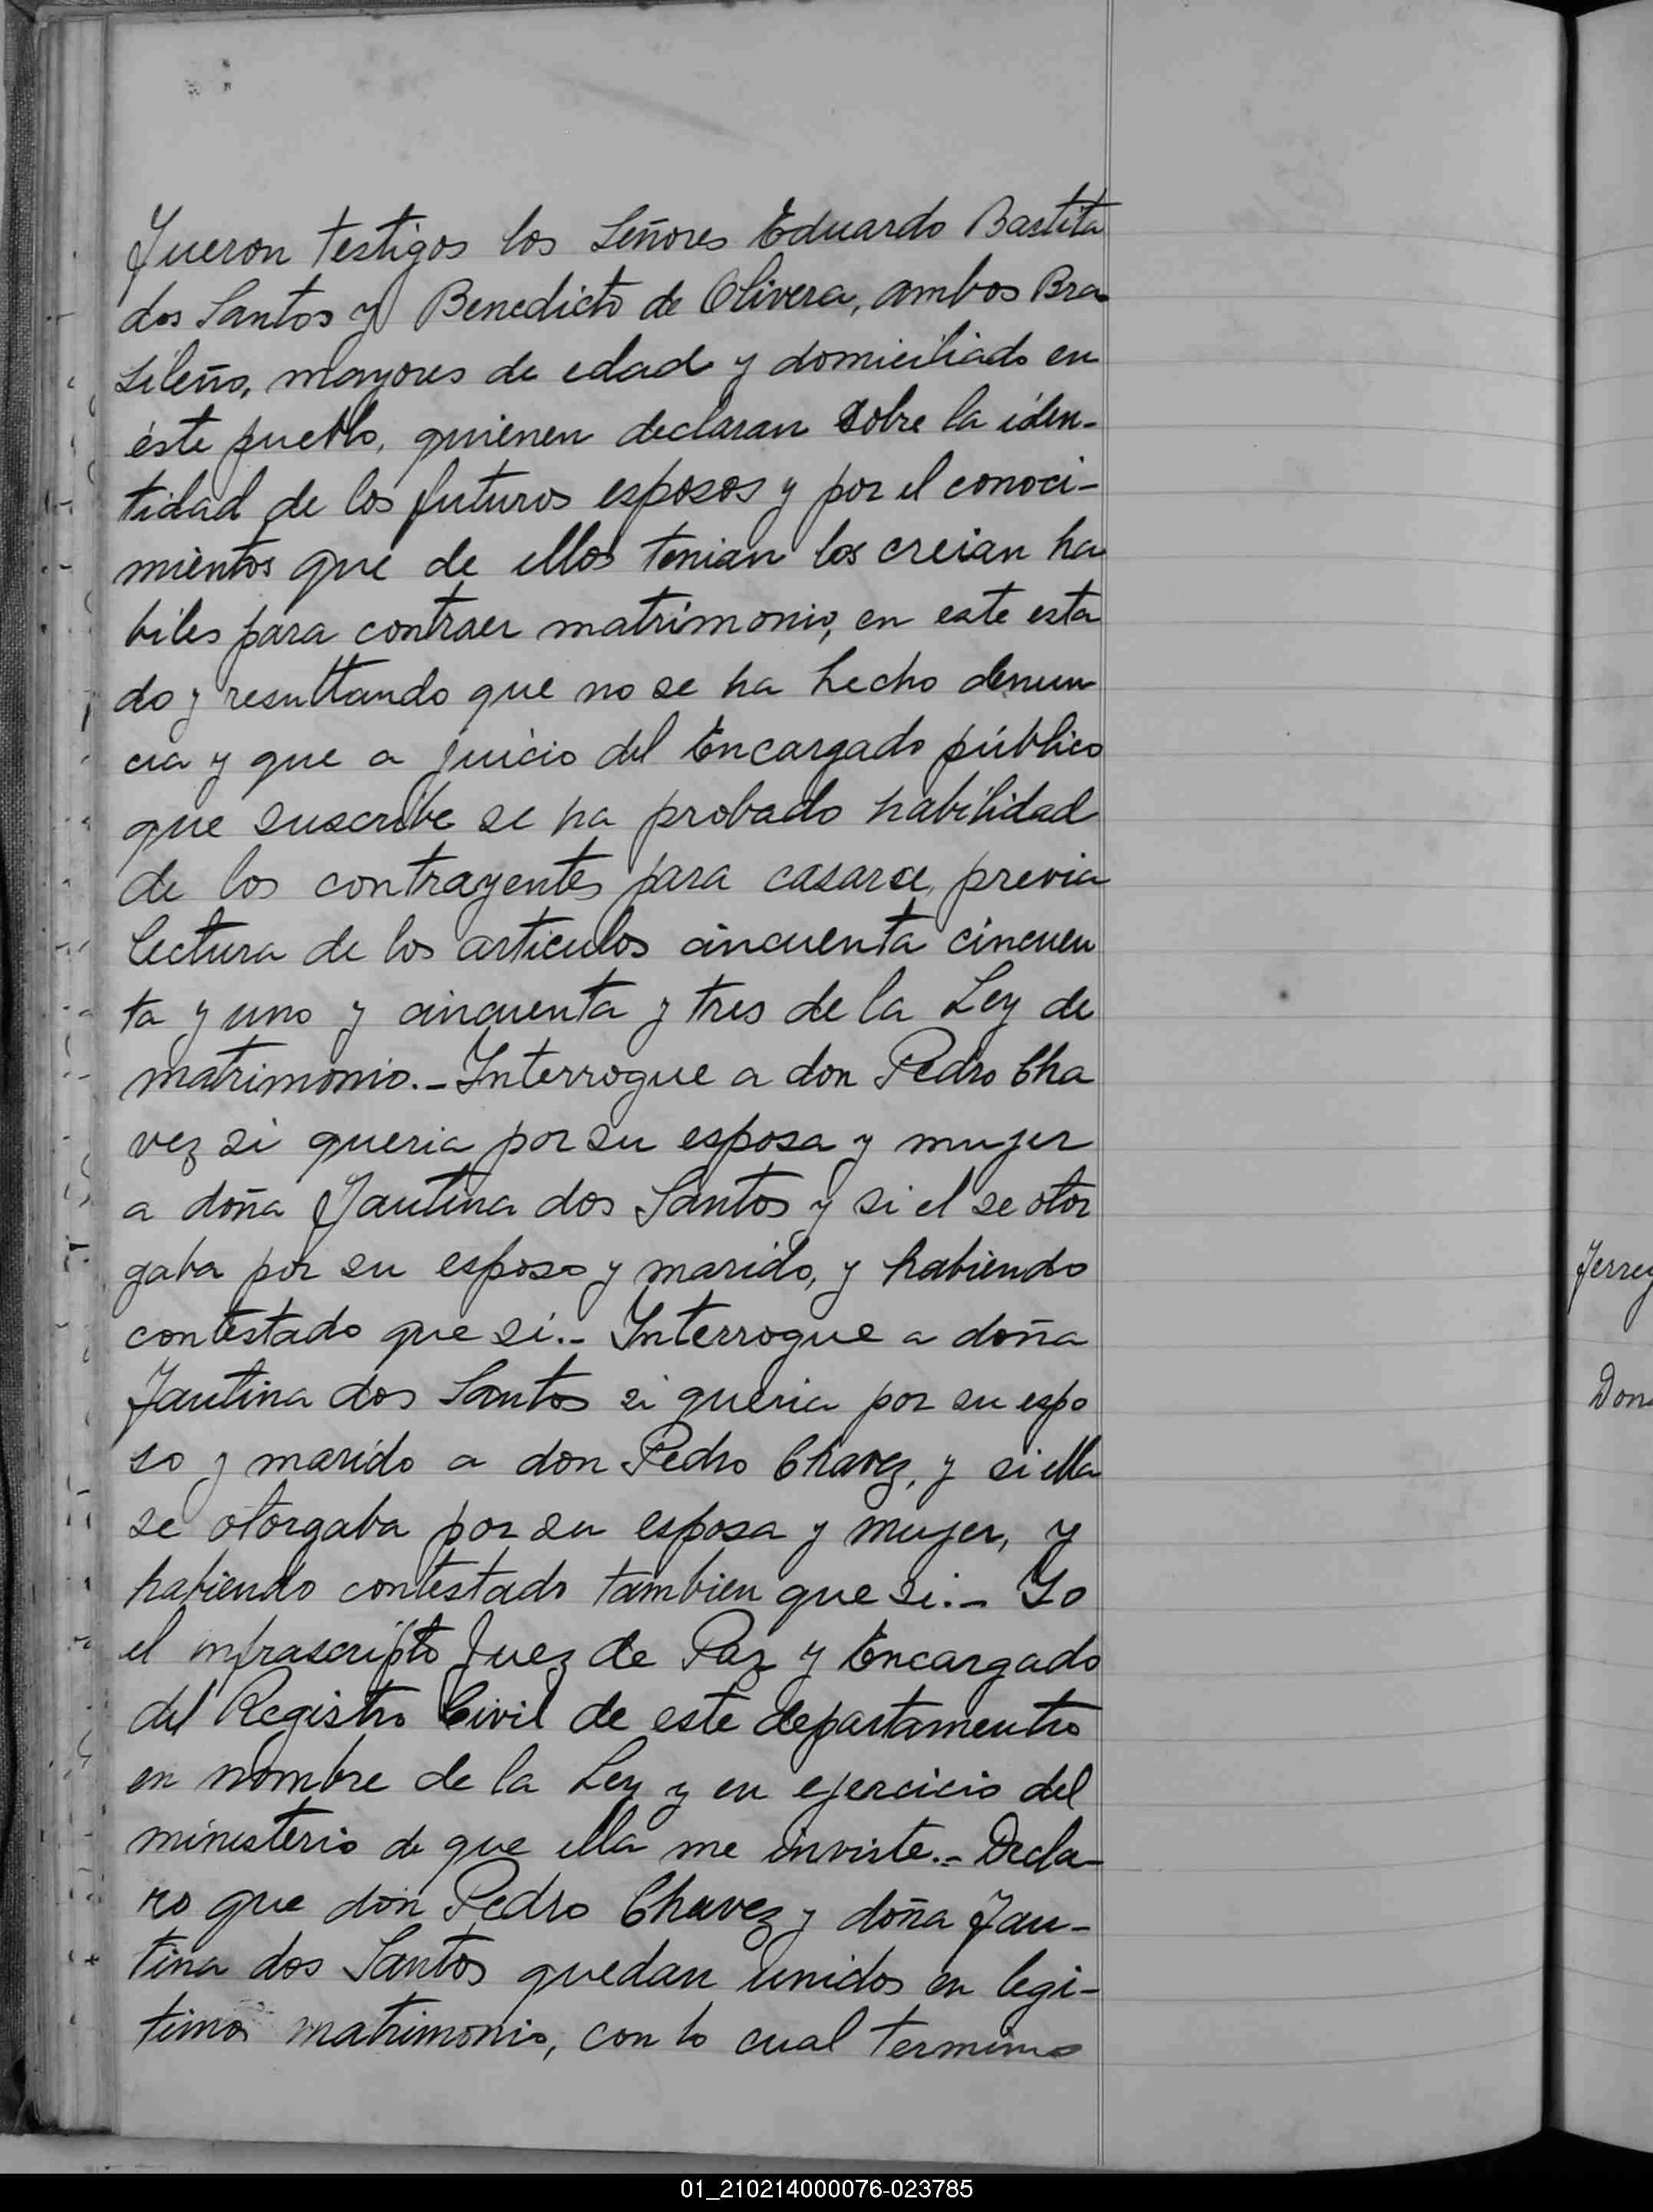 Fueron testigos los Señores Eduardo Bastita
dos Santos y Benedicto de Olivera, ambos Bra
sileño, mayores de edad y domiciliado en
éste pueblo, quienen declaran sobre la iden-
tidad de los futuros esposos y por el conoci-
mientos que de ellos tenian los creian ha
biles para contraer matrimonio, en este esta
do y resultando que no se ha hecho denun
cia y que a juicio del Encargado público
que suscribe se ha probado habilidad
de los contrayentes para casarse, previa
lectura de los articulos cincuenta cincuen
ta y uno y cincuenta y tres de la Ley de
matrimonio.- Interrogue a don Pedro Cha
vez si queria por su esposa y mujer
a doña Fautina dos Santos y si el se otor
gaba por su esposo y marido, y habiendo
contestado que si.- Interrogue a doña
Fautina dos Santos si queria por su espo
so y marido a don Pedro Chavez, y si ella
se otorgaba por su esposa y mujer, y
habiendo contestado tambien que si.- Yo
el infrascripto Juez de Paz y Encargado
del Registro Civil de este departamentro
en nombre de la Ley y en ejercicio del
ministerio de que ella me inviste.- Decla-
ro que don Pedro Chavez y doña Fau-
tina dos Santos quedan unidos en legi-
timo matrimonio, con lo cual termino
Ferrey
Don
01_210214000076-023785